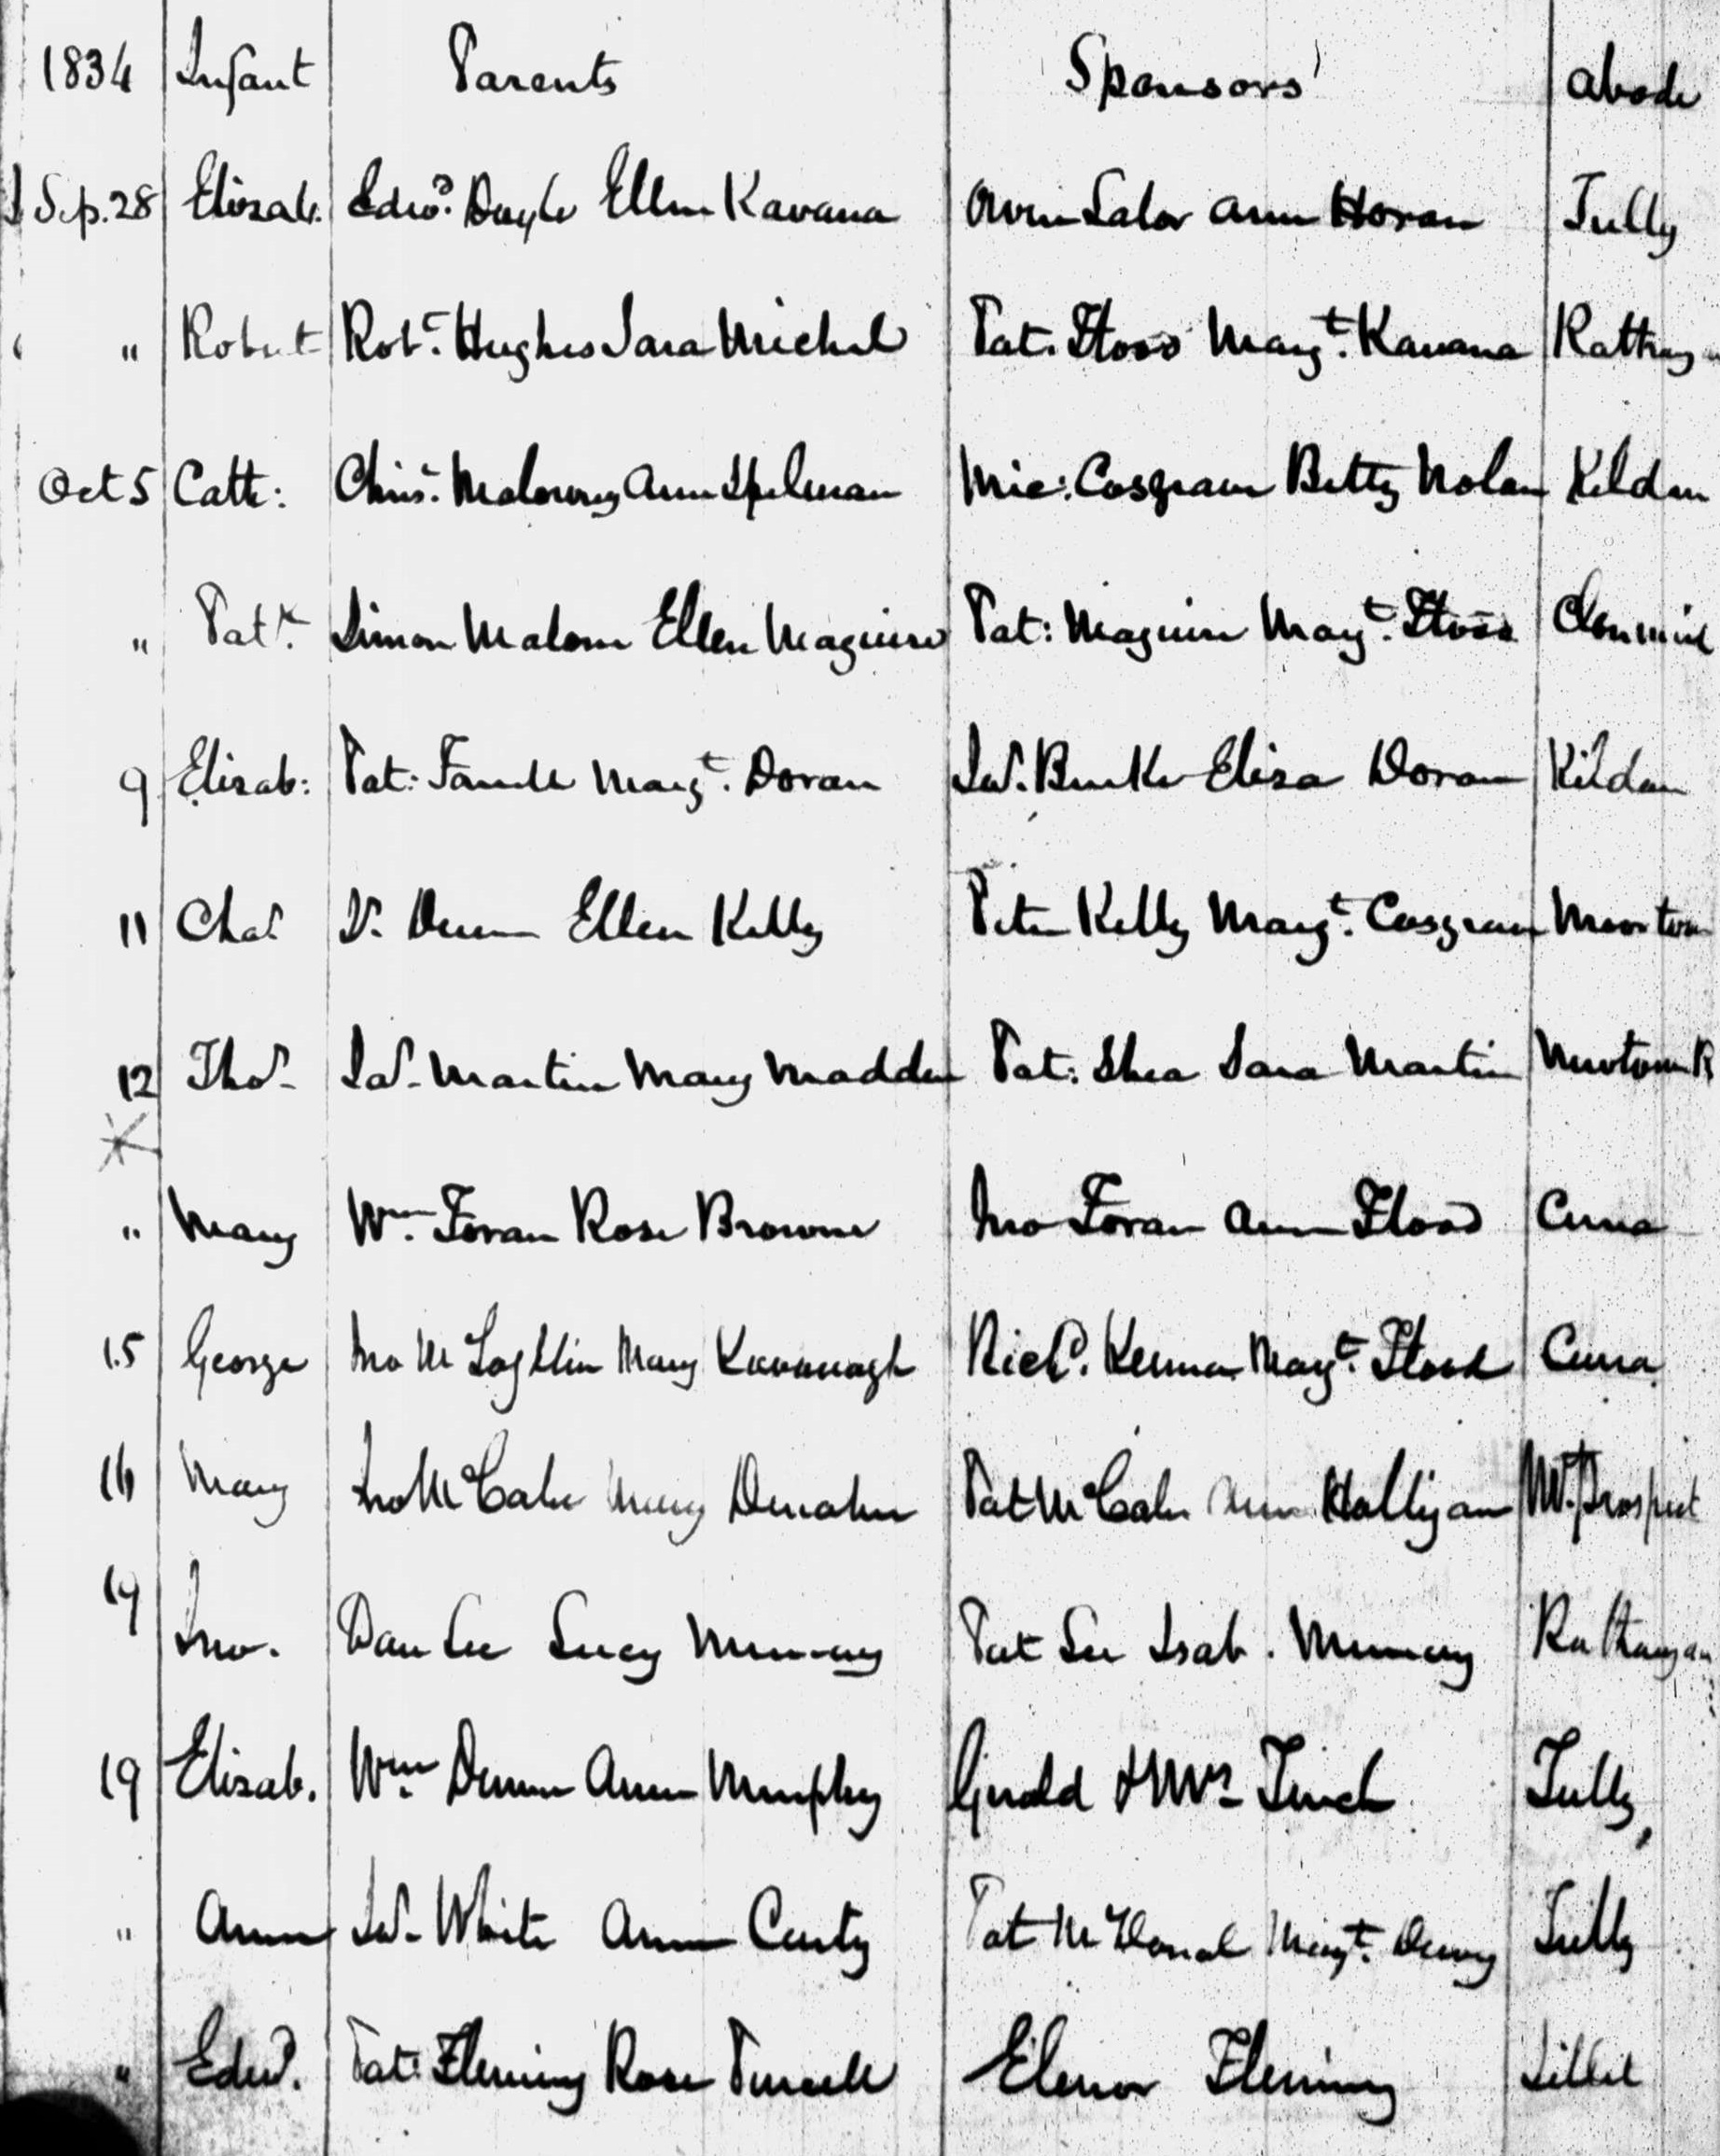 1834 Infant Parents Sponsors abode
Sep. 28 Elizab. Edwd. Doyle Ellen Kavana Owen Lalor Ann Horan Tully
" Robert Robt. Hughes Sara Michel Pat. Flood Margt. Kavana Rathang
Oct 5 Cath: Chris. Malowny Ann Spelman Mic: Cosgrave Betty Nolan Kildare
" Patk. Simon Malone Ellen Maguire Pat: Maguire Margt. Flood
9 Elizab: Pat: Margt. Doran Jas. Burke Eliza Doran Kildare
11 Chas Dunn Ellen Kelly Peter Kelly Margt. Cosgrave Moortown
12 Thos. Jas. Martin Mary Madden Pat: Shea Sara Martin Newtown R
" Mary Wm. Foran Rose Browne Jno Foran Ann Flood Curra
15 George Jno McLoghlin Mary Kavanagh Richd. Kenna Margt. Flood Curra
16 Mary Jno McCabe Mary Denahu Pat McCabe Ann Halligan Mt. Prospect
Jno. Dan Lee Lucy Murray Pat Lee Isab. Murray Rathangan
19 Elizab. Wm. Dunn Ann Murphy Gerald & Mrs Tully
" Ann Jas. White Ann Carty Pat McDonal Margt. Tully
" Edwd. Pat: Fleming Rose Purcell Elenor Fleming